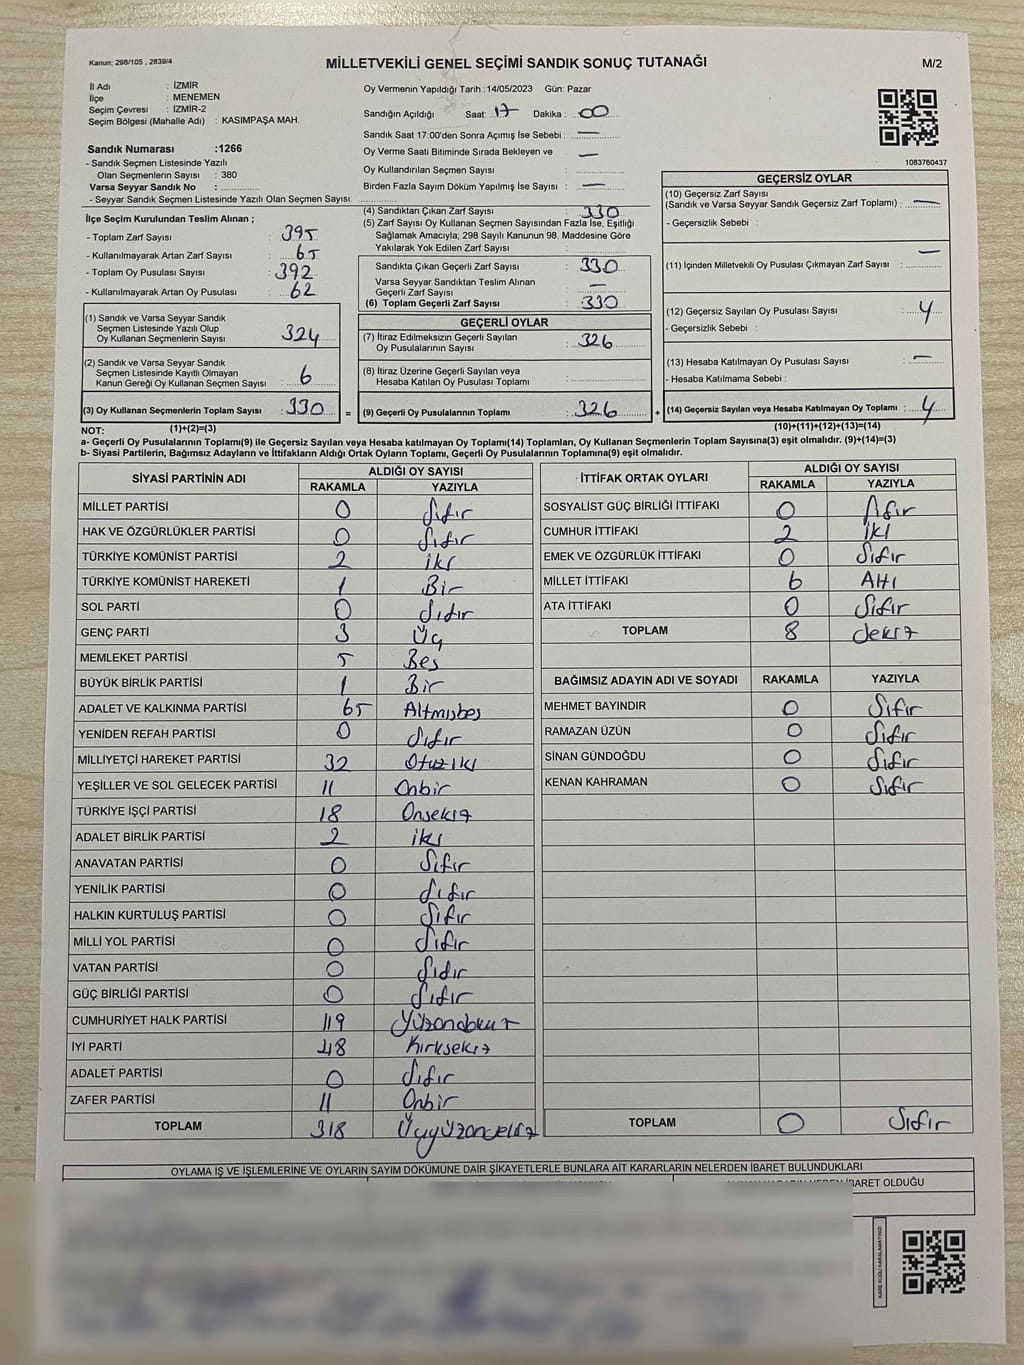 Kanun; 298/105 , 2839/4
MİLLETVEKİLİ GENEL SEÇİMİ SANDIK SONUÇ TUTANAĞI
M/2
İl Adı : İZMİR
İlçe : MENEMEN
Seçim Çevresi : İZMİR-2
Seçim Bölgesi (Mahalle Adı) : KASIMPAŞA MAH.
Sandık Numarası :1266
- Sandık Seçmen Listesinde Yazılı
Olan Seçmenlerin Sayısı : 380
Varsa Seyyar Sandık No :
- Seyyar Sandık Seçmen Listesinde Yazılı Olan Seçmen Sayısı:
Oy Vermenin Yapıldığı Tarih : 14/05/2023 Gün: Pazar
Sandığın Açıldığı Saat: 17 Dakika : 00
Sandık Saat 17:00'den Sonra Açımış İse Sebebi : —
Oy Verme Saati Bitiminde Sırada Bekleyen ve
Oy Kullandırılan Seçmen Sayısı : —
Birden Fazla Sayım Döküm Yapılmış İse Sayısı : —
1083760437
İlçe Seçim Kurulundan Teslim Alınan ;
- Toplam Zarf Sayısı : 395
- Kullanılmayarak Artan Zarf Sayısı : 65
- Toplam Oy Pusulası Sayısı : 392
- Kullanılmayarak Artan Oy Pusulası : 62
(1) Sandık ve Varsa Seyyar Sandık
Seçmen Listesinde Yazılı Olup
Oy Kullanan Seçmenlerin Sayısı : 324
(2) Sandık ve Varsa Seyyar Sandık
Seçmen Listesinde Kayıtlı Olmayan
Kanun Gereği Oy Kullanan Seçmen Sayısı : 6
(3) Oy Kullanan Seçmenlerin Toplam Sayısı : 330 =
(4) Sandıktan Çıkan Zarf Sayısı : 330
(5) Zarf Sayısı Oy Kullanan Seçmen Sayısından Fazla İse, Eşitliği
Sağlamak Amacıyla; 298 Sayılı Kanunun 98. Maddesine Göre
Yakılarak Yok Edilen Zarf Sayısı :
Sandıkta Çıkan Geçerli Zarf Sayısı : 330
Varsa Seyyar Sandıktan Teslim Alınan
Geçerli Zarf Sayısı : —
(6) Toplam Geçerli Zarf Sayısı : 330
GEÇERLİ OYLAR
(7) İtiraz Edilmeksizin Geçerli Sayılan
Oy Pusulalarının Sayısı : 326
(8) İtiraz Üzerine Geçerli Sayılan veya
Hesaba Katılan Oy Pusulası Toplamı :
(9) Geçerli Oy Pusulalarının Toplamı : 326 +
GEÇERSİZ OYLAR
(10) Geçersiz Zarf Sayısı
(Sandık ve Varsa Seyyar Sandık Geçersiz Zarf Toplamı) : —
- Geçersizlik Sebebi :
(11) İçinden Milletvekili Oy Pusulası Çıkmayan Zarf Sayısı : —
(12) Geçersiz Sayılan Oy Pusulası Sayısı : 4
- Geçersizlik Sebebi :
(13) Hesaba Katılmayan Oy Pusulası Sayısı : —
- Hesaba Katılmama Sebebi :
(14) Geçersiz Sayılan veya Hesaba Katılmayan Oy Toplamı : 4
NOT: (1)+(2)=(3)
(10)+(11)+(12)+(13)=(14)
a- Geçerli Oy Pusulalarının Toplamı(9) ile Geçersiz Sayılan veya Hesaba katılmayan Oy Toplamı(14) Toplamları, Oy Kullanan Seçmenlerin Toplam Sayısına(3) eşit olmalıdır. (9)+(14)=(3)
b- Siyasi Partilerin, Bağımsız Adayların ve İttifakların Aldığı Ortak Oyların Toplamı, Geçerli Oy Pusulalarının Toplamına(9) eşit olmalıdır.
SİYASİ PARTİNİN ADI ALDIĞI OY SAYISI
RAKAMLA YAZIYLA
MİLLET PARTİSİ 0 Sıfır
HAK VE ÖZGÜRLÜKLER PARTİSİ 0 Sıfır
TÜRKİYE KOMÜNİST PARTİSİ 2 iki
TÜRKİYE KOMÜNİST HAREKETİ 1 Bir
SOL PARTİ 0 Sıfır
GENÇ PARTİ 3 Üç
MEMLEKET PARTİSİ 5 Beş
BÜYÜK BİRLİK PARTİSİ 1 Bir
ADALET VE KALKINMA PARTİSİ 65 Altmışbeş
YENİDEN REFAH PARTİSİ 0 Sıfır
MİLLİYETÇİ HAREKET PARTİSİ 32 Otuziki
YEŞİLLER VE SOL GELECEK PARTİSİ 11 Onbir
TÜRKİYE İŞÇİ PARTİSİ 18 Onsekiz
ADALET BİRLİK PARTİSİ 2 iki
ANAVATAN PARTİSİ 0 Sıfır
YENİLİK PARTİSİ 0 Sıfır
HALKIN KURTULUŞ PARTİSİ 0 Sıfır
MİLLİ YOL PARTİSİ 0 Sıfır
VATAN PARTİSİ 0 Sıfır
GÜÇ BİRLİĞİ PARTİSİ 0 Sıfır
CUMHURİYET HALK PARTİSİ 119 Yüzondokuz
İYİ PARTİ 48 Kırksekiz
ADALET PARTİSİ 0 Sıfır
ZAFER PARTİSİ 11 Onbir
TOPLAM 318 Üçyüzonsekiz
İTTİFAK ORTAK OYLARI ALDIĞI OY SAYISI
RAKAMLA YAZIYLA
SOSYALİST GÜÇ BİRLİĞİ İTTİFAKI 0 Sıfır
CUMHUR İTTİFAKI 2 iki
EMEK VE ÖZGÜRLÜK İTTİFAKI 0 Sıfır
MİLLET İTTİFAKI 6 Altı
ATA İTTİFAKI 0 Sıfır
TOPLAM 8 Sekiz
BAĞIMSIZ ADAYIN ADI VE SOYADI RAKAMLA YAZIYLA
MEHMET BAYINDIR 0 Sıfır
RAMAZAN ÜZÜN 0 Sıfır
SİNAN GÜNDOĞDU 0 Sıfır
KENAN KAHRAMAN 0 Sıfır
TOPLAM 0 Sıfır
OYLAMA İŞ VE İŞLEMLERİNE VE OYLARIN SAYIM DÖKÜMÜNE DAİR ŞİKAYETLERLE BUNLARA AİT KARARLARIN NELERDEN İBARET BULUNDUKLARI
İBARET OLDUĞU
KARE KODU KARALAMAYINIZ!